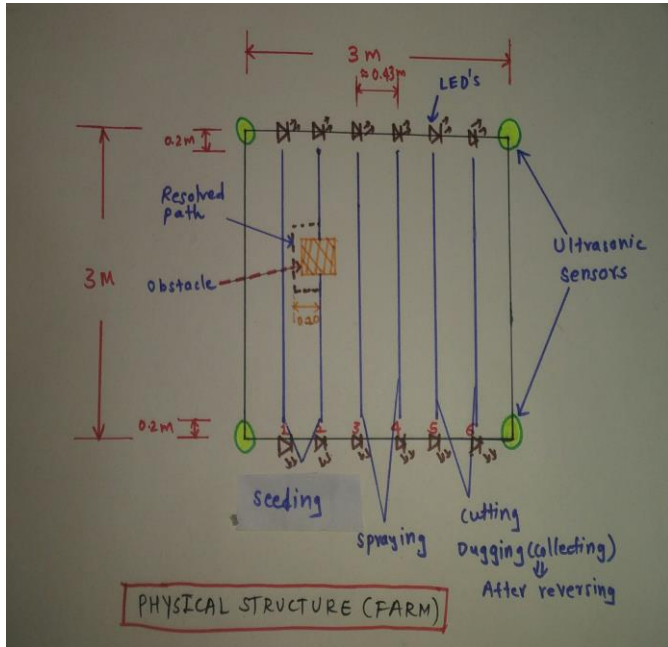 3 m
≈ 0.43m
LED's
0.2m
Resolved
path
Obstacle
3M
Ultrasonic
Sensors
0.20
0.2m
1 2 3 4 5 6
Seeding
Spraying
Cutting
Dugging (collecting)
⇓
After reversing
PHYSICAL STRUCTURE (FARM)